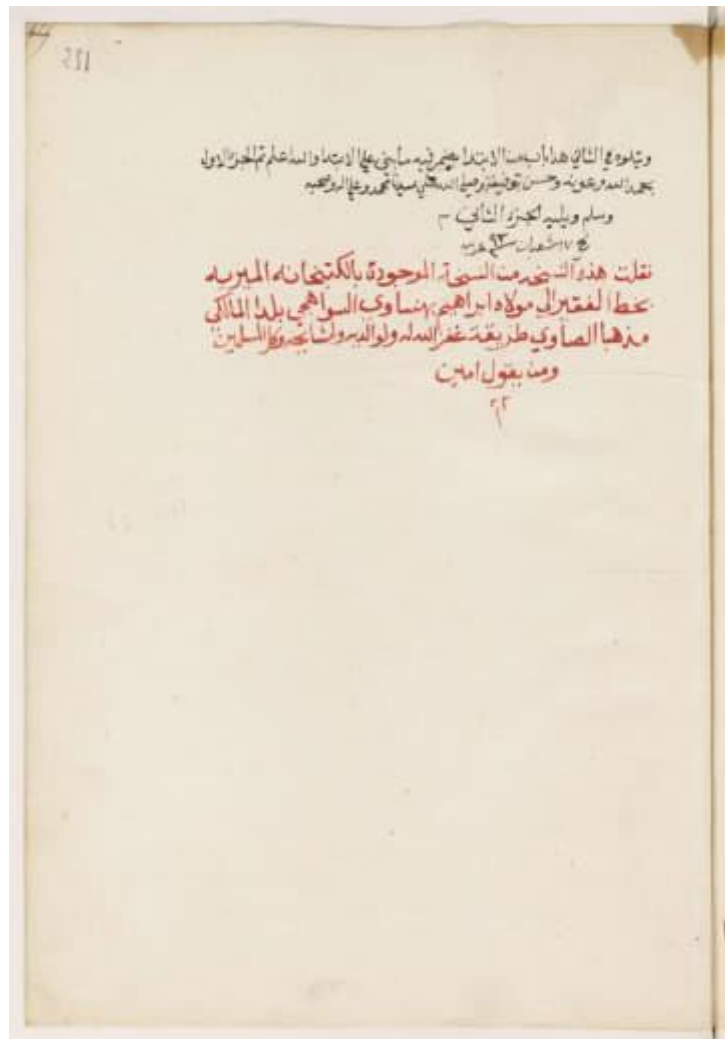 ويتلوه في الثاني هذا باب من الابتدا يضمر فيه ما بني على الابتدا والله اعلم تم الجزء الاول
بحمد الله وعونه وحسن توفيقه وصلى الله على سيدنا محمد وعلى اله وصحبه
وسلم ويليه الجزء الثاني
١٧ شعبان سنة ٩٣
نقلت هذه النسخه من النسخة الموجودة بالكتبخانه الميريه
بخط الفقير الى مولاه ابراهيم السواهجي بلدا المالكي
مذهبا الصاوي طريقة غفر الله له ولوالديه ولمشايخه وكل المسلمين
ومن يقول امين